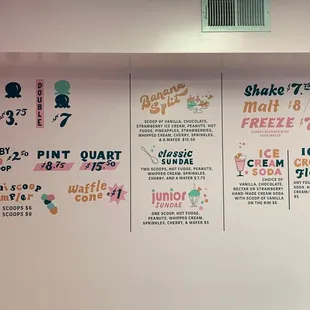 $3.75
DOUBLE
$7
BY $2.50
PINT
$8.75
QUART
$15.50
scoop
SCOOPS $6
SCOOPS $8
Waffle
cone
$1
Banana
Split
SCOOP OF VANILLA, CHOCOLATE,
STRAWBERRY ICE CREAM, PEANUTS, HOT
FUDGE, PINEAPPLES, STRAWBERRIES,
WHIPPED CREAM, CHERRY, SPRINKLES,
& A WAFER. $10.50
classic
SUNDAE
TWO SCOOPS, HOT FUDGE, PEANUTS,
WHIPPED CREAM, SPRINKLES,
CHERRY, AND A WAFER $7.75
junior
SUNDAE
ONE SCOOP, HOT FUDGE,
PEANUTS, WHIPPED CREAM,
SPRINKLES, CHERRY, & WAFER $5
Shake $7
malt $8
FREEZE $7
ICE
CREAM
SODA
CHOICE OF
VANILLA, CHOCOLATE,
NECTAR OR STRAWBERRY
HAND-MADE CREAM SODA
WITH SCOOP OF VANILLA
ON THE RIM $8